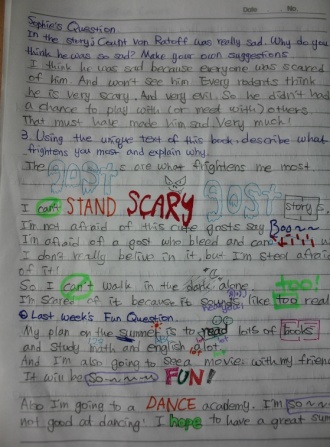 Date No.
Sophie's Question
In the story, Count von Ratoff was really sad. Why do you
think he was so sad? Make your own suggestions
I think he was sad because everyone was scared
of him And won't see him Every rodents think
he is very scary. And very evil. So he didn't had
a chance to play with (or meet with) others
That must have made him sad. Very much!
3. Using the unique text of this book, describe what
frightens you most and explain why.
The gosts are what frightens me most.
I can't STAND SCARY gost storys,
I'm not afraid of this cute gosts say Boo~~
I'm afraid of a gost who bleed and
I don't really belive in it, but I'm steal afraid
of it!
So I can't walk in the dark alone, too!
I'm scared of it because it sounds like too real
Last week's Fun Question
My plan on the summer is to read lots of books
and study math and english a lot
And I'm also going to see a movie with my friend
It will be so~~~~ FUN!
Also I'm going to a DANCE academy. I'm so~~
not good at dancing! I hope to have a great sum